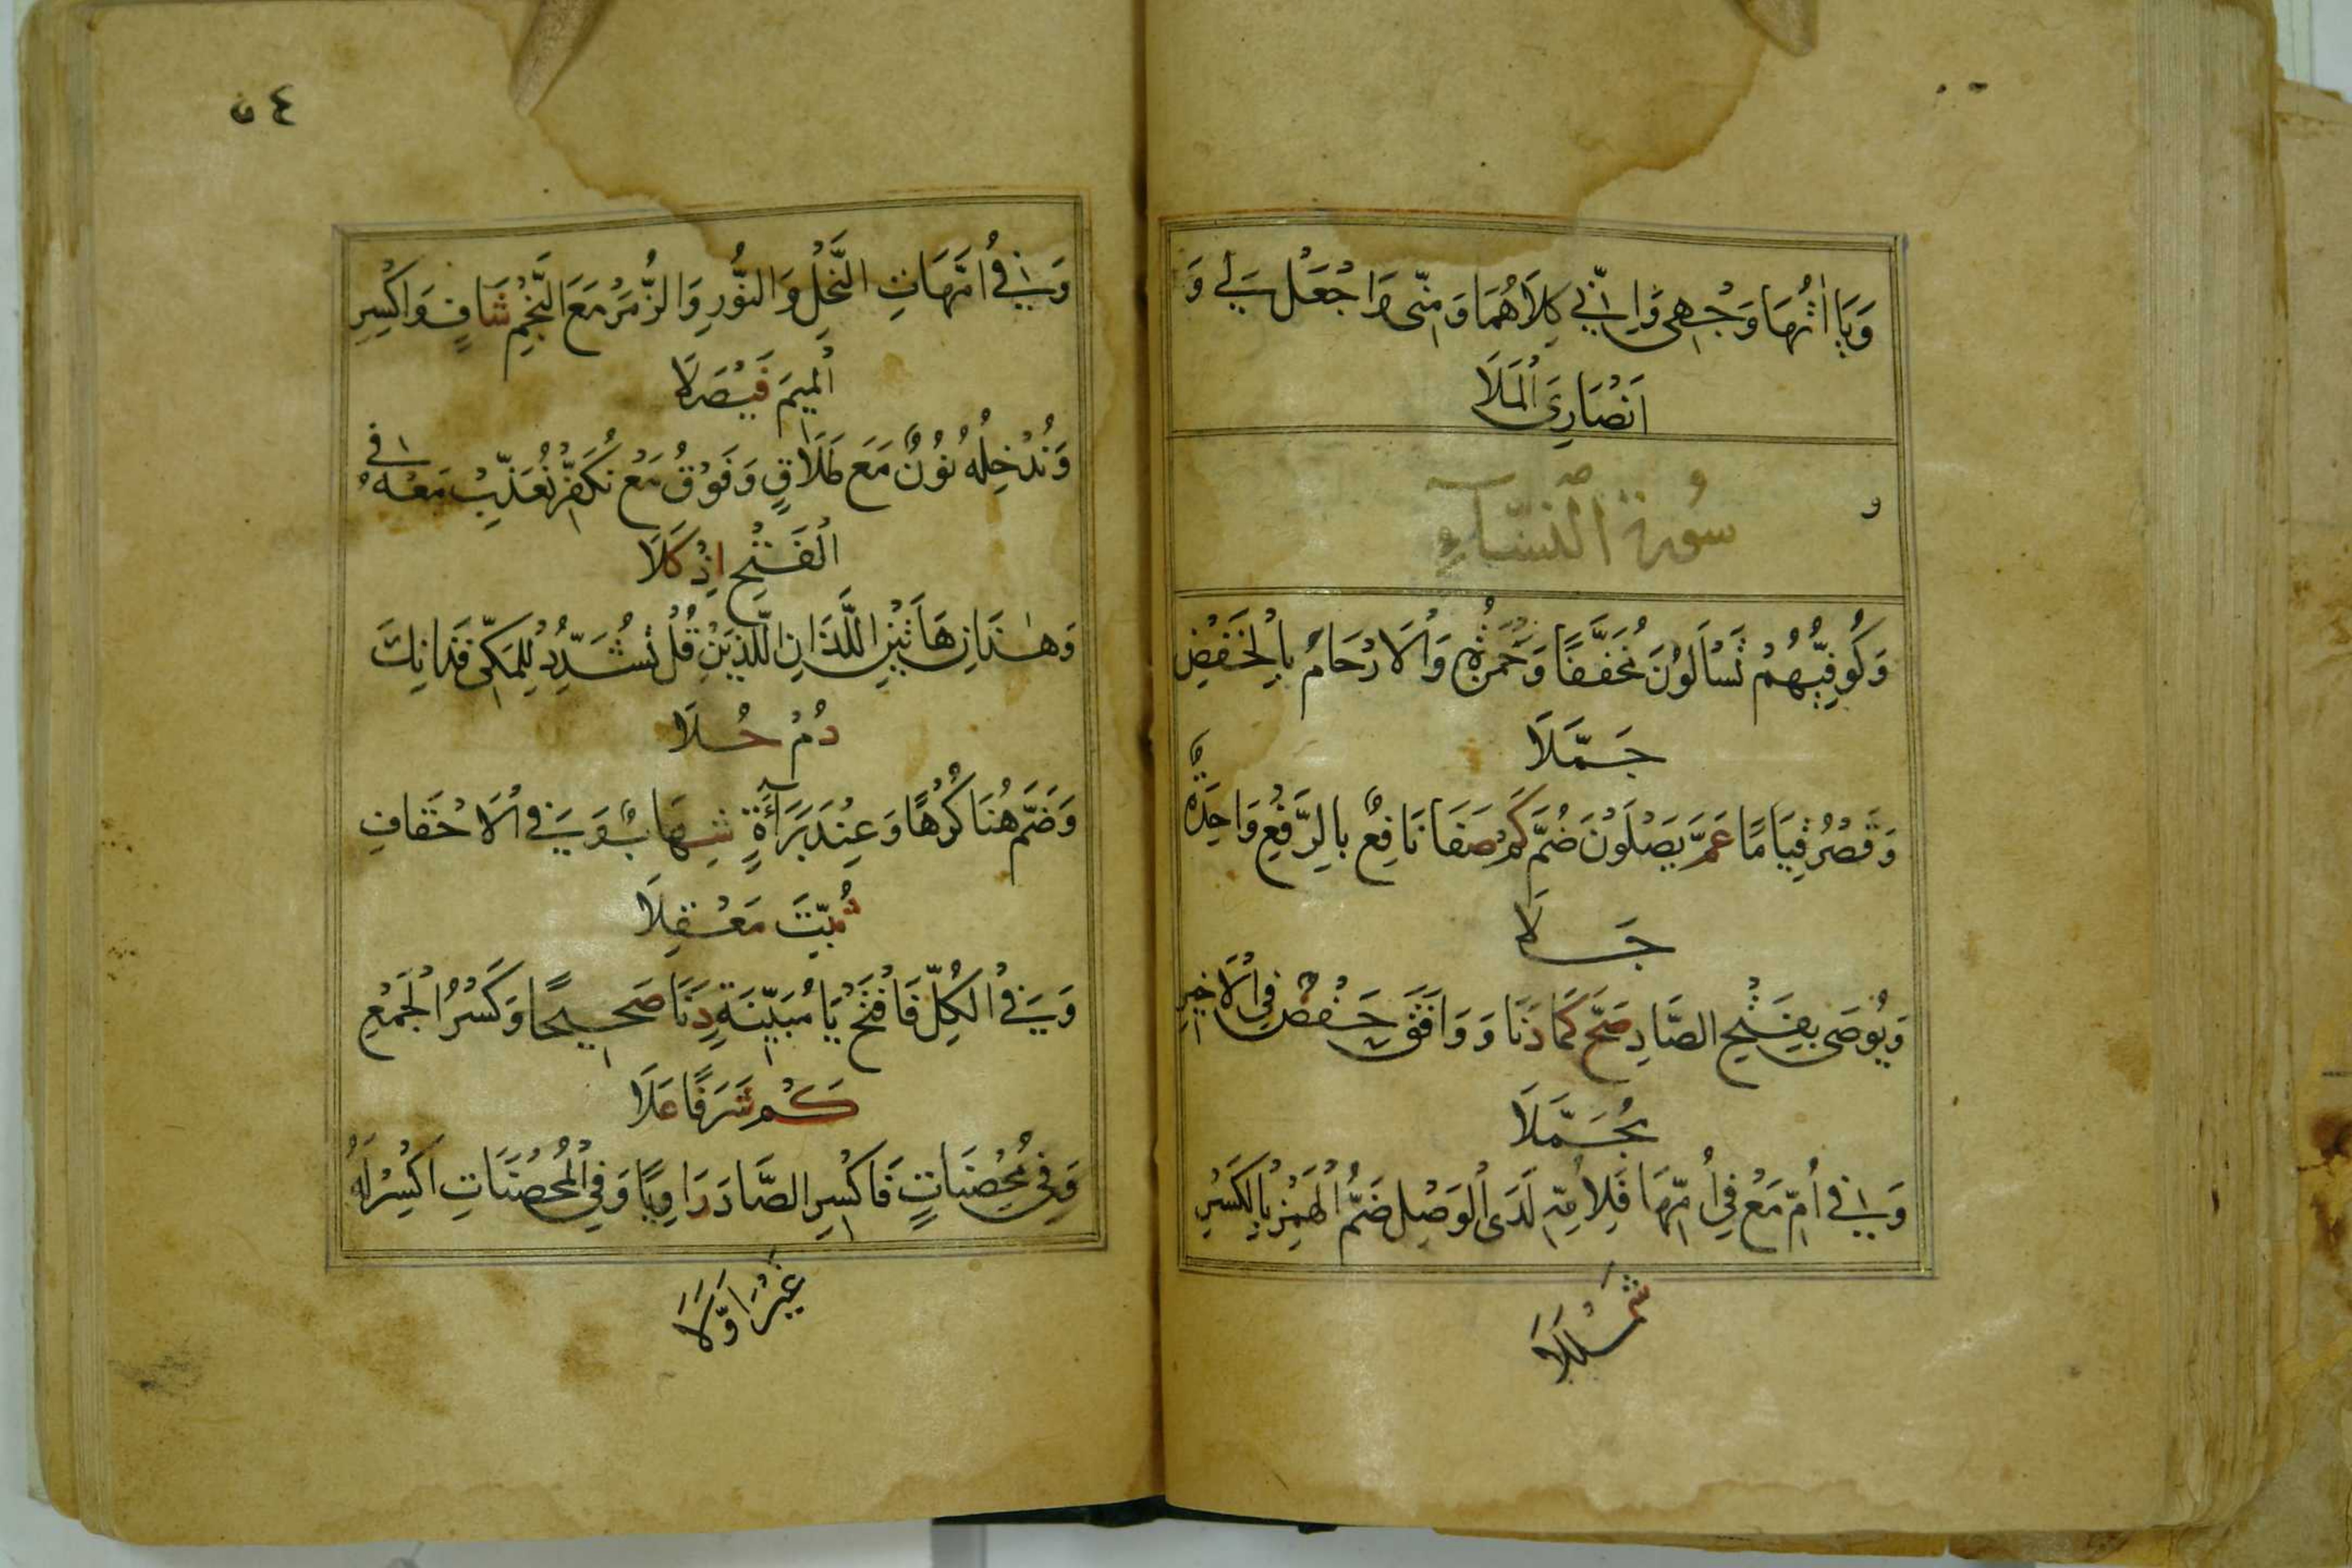 وَيَا اٰتُهَا وَجْهِى وَاِنِّي كِلَاهُمَا وَمِنِّى وَاجْعَلْ لِي وَ
اَنْصَارِىَ الْمَلَا
سُورة النِّسَآءِ
وَكُوفِيُّهُمْ تَسَاءَلُونَ مُخَفَّفًا وَحَمْزَةُ وَالْاَرْحَامُ بِالْخَفْضِ
جَمَّلَا
وَقَصْرُ قِيَامًا عَمَّ يَصْلَوْنَ ضُمَّ كَمْ صَفَا نَافِعٌ بِالرَّفْعِ وَاحِدَةٌ
جَلَا
وَيُوصَى بِفَتْحِ الصَّادِ صَحَّ كَمَا دَنَا وَوَافَقَ حَفْصٌ فِي الْاَخِيرِ
مُجَمَّلَا
وَفِي اُمِّ مَعْ فِي اُمِّهَا فَلِاُمِّهِ لَدَى الْوَصْلِ ضَمُّ الْهَمْزِ بِالْكَسْرِ
شَمْلَلَا
٥٤
وَفِي اُمَّهَاتِ النَّحْلِ وَالنُّورِ وَالزُّمَرْ مَعَ النَّجْمِ شَافٍ وَاكْسِرِ
الْمِيمَ فَيْصَلَا
وَنُدْخِلْهُ نُونٌ مَعَ طَلَاقٍ وَفَوْقُ مَعْ نُكَفِّرْ نُعَذِّبْ مَعْهُ فِي
الْفَتْحِ اِذْ كَلَا
وَهٰذَانِ هَاتَيْنِ اللَّذَانِ اللَّذَيْنِ قُلْ تُشَدِّدُ لِلْمَكِّى فَذَانِكَ
دُمْ حُلَا
وَضَمَّ هُنَا كُرْهًا وَعِنْدَ بَرَآءَةٍ شِهَابٌ وَفِي الْاَحْقَافِ
ثُبِّتَ مَعْقِلَا
وَفِي الْكُلِّ فَافْتَحْ يَا مُبَيِّنَةٍ دَنَا صَحِيحًا وَكَسْرُ الْجَمْعِ
كَمْ شَرَفًا عَلَا
وَفِي مُحْصَنَاتٍ فَاكْسِرِ الصَّادَ رَاوِيًا وَفِي الْمُحْصَنَاتِ اكْسِرْ لَهُ
غَيْرَ اَوَّلَا